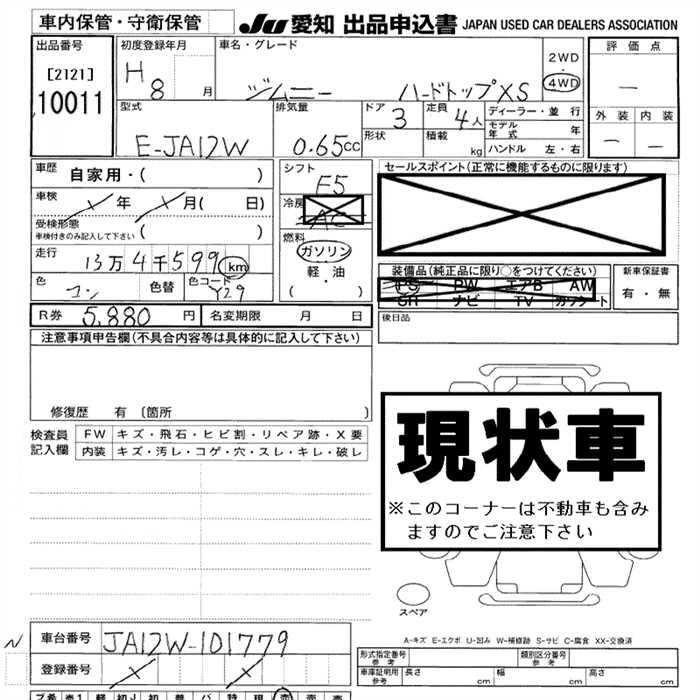 車内保管・守衛保管 JU 愛知 出品申込書 JAPAN USED CAR DEALERS ASSOCIATION
出品番号 初度登録年月 車名・グレード 2WD 評価点
[2121] H 8 月 ジムニー ハードトップXS 4WD —
10011
型式 排気量 ドア 3 定員 4人 ディーラー・並行 外装 内装
E-JA12W 0.65cc 形状 積載 kg モデル年式 年 — —
ハンドル 左・右
車歴 自家用・( ) シフト F5 セールスポイント(正常に機能するものに限ります)
車検 年 月( 日) 冷房 AC
受検形態
車検付きのみ記入して下さい ( ) 燃料
走行 13万4千599km ガソリン 装備品(純正品に限り○をつけてください) 新車保証書
色 コン 色替 色コード Y29 軽・油 PS PW エアB AW 有・無
( ) SR ナビ TV カワシート
R券 5,880 円 名変期限 月 日 後日品
注意事項申告欄(不具合内容等は具体的に記入して下さい)
修復歴 有 〔箇所 〕
現状車
※このコーナーは不動車も含み
ますのでご注意下さい
検査員 FW キズ・飛石・ヒビ割・リペア跡・X要
記入欄 内装 キズ・汚レ・コゲ・穴・スレ・キレ・破レ
スペア
A-キズ E-エクボ U-凹み W-補修跡 S-サビ C-腐食 XX-交換済
N 車台番号 JA12W-101779
登録番号
形式指定番号 参考 類別区分番号 参考
車庫証明用 参考 長さ cm 幅 cm 高さ cm